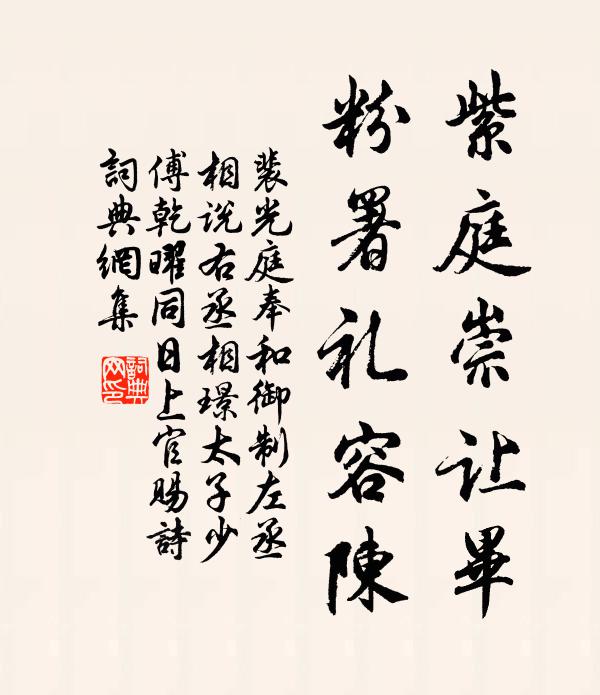 紫庭崇让畢
粉署礼容陳
裴光庭奉和御制左丞
相说右丞相璟太子少
傅乾曜同日上官賜詩
詞典網集
詞典
网印